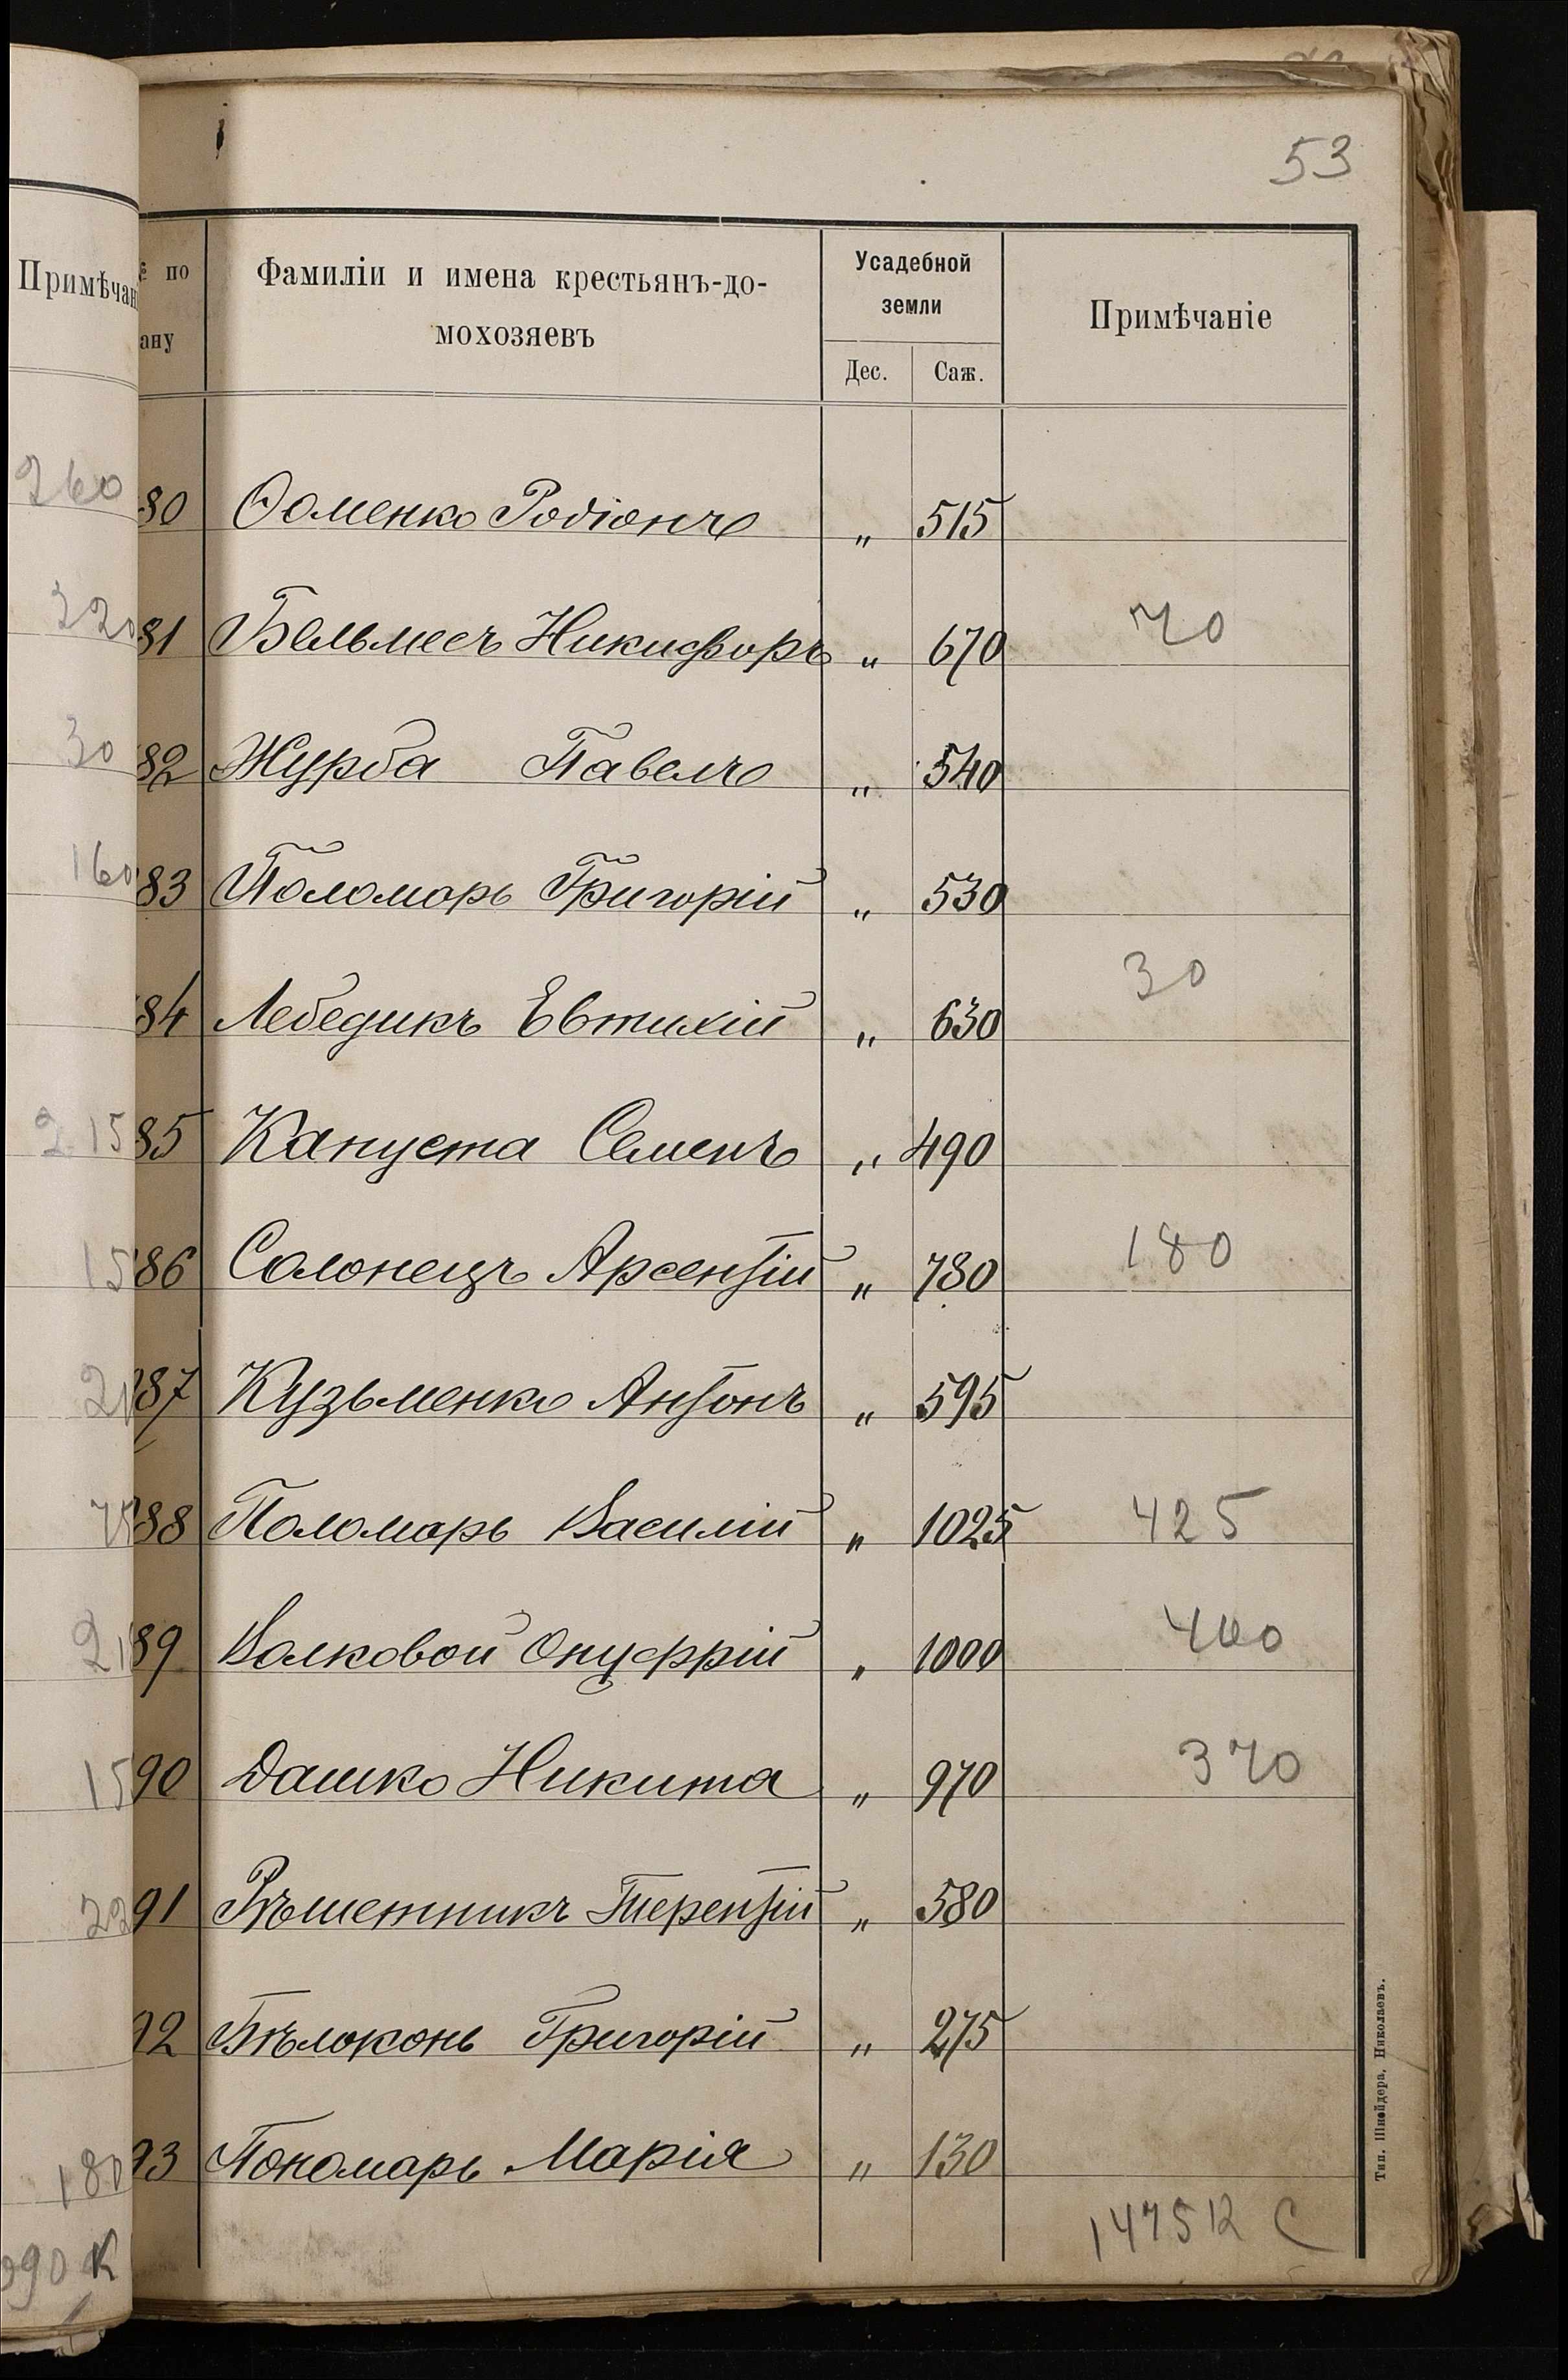 53
Примѣчан
№ по
ану
Фамиліи и имена крестьянъ-до-
мохозяевъ
Усадебной
земли
Дес. Саж.
Примѣчаніе
260
80 Ѳоменко Родіонъ „ 515
320
81 Бельмесъ Никифоръ „ 670 70
30
82 Журба Павелъ „ 540
160
83 Поломарь Григорій „ 530
84 Лебедикъ Евтихій „ 630 30
215
85 Капуста Семенъ „ 490
15
86 Солонецъ Арсентій „ 780 180
21
87 Кузьменко Антонъ „ 595
75
88 Поломарь Василій „ 1025 425
21
89 Волковой Онуфрій „ 1000 400
15
90 Дашко Никита „ 970 370
22
91 Рѣшетникъ Терентій „ 580
92 Бѣлоконь Григорій „ 275
180
93 Покомарь Марія „ 130
90 К
1475 К С
Тип. Шнейдера, Николаевъ.